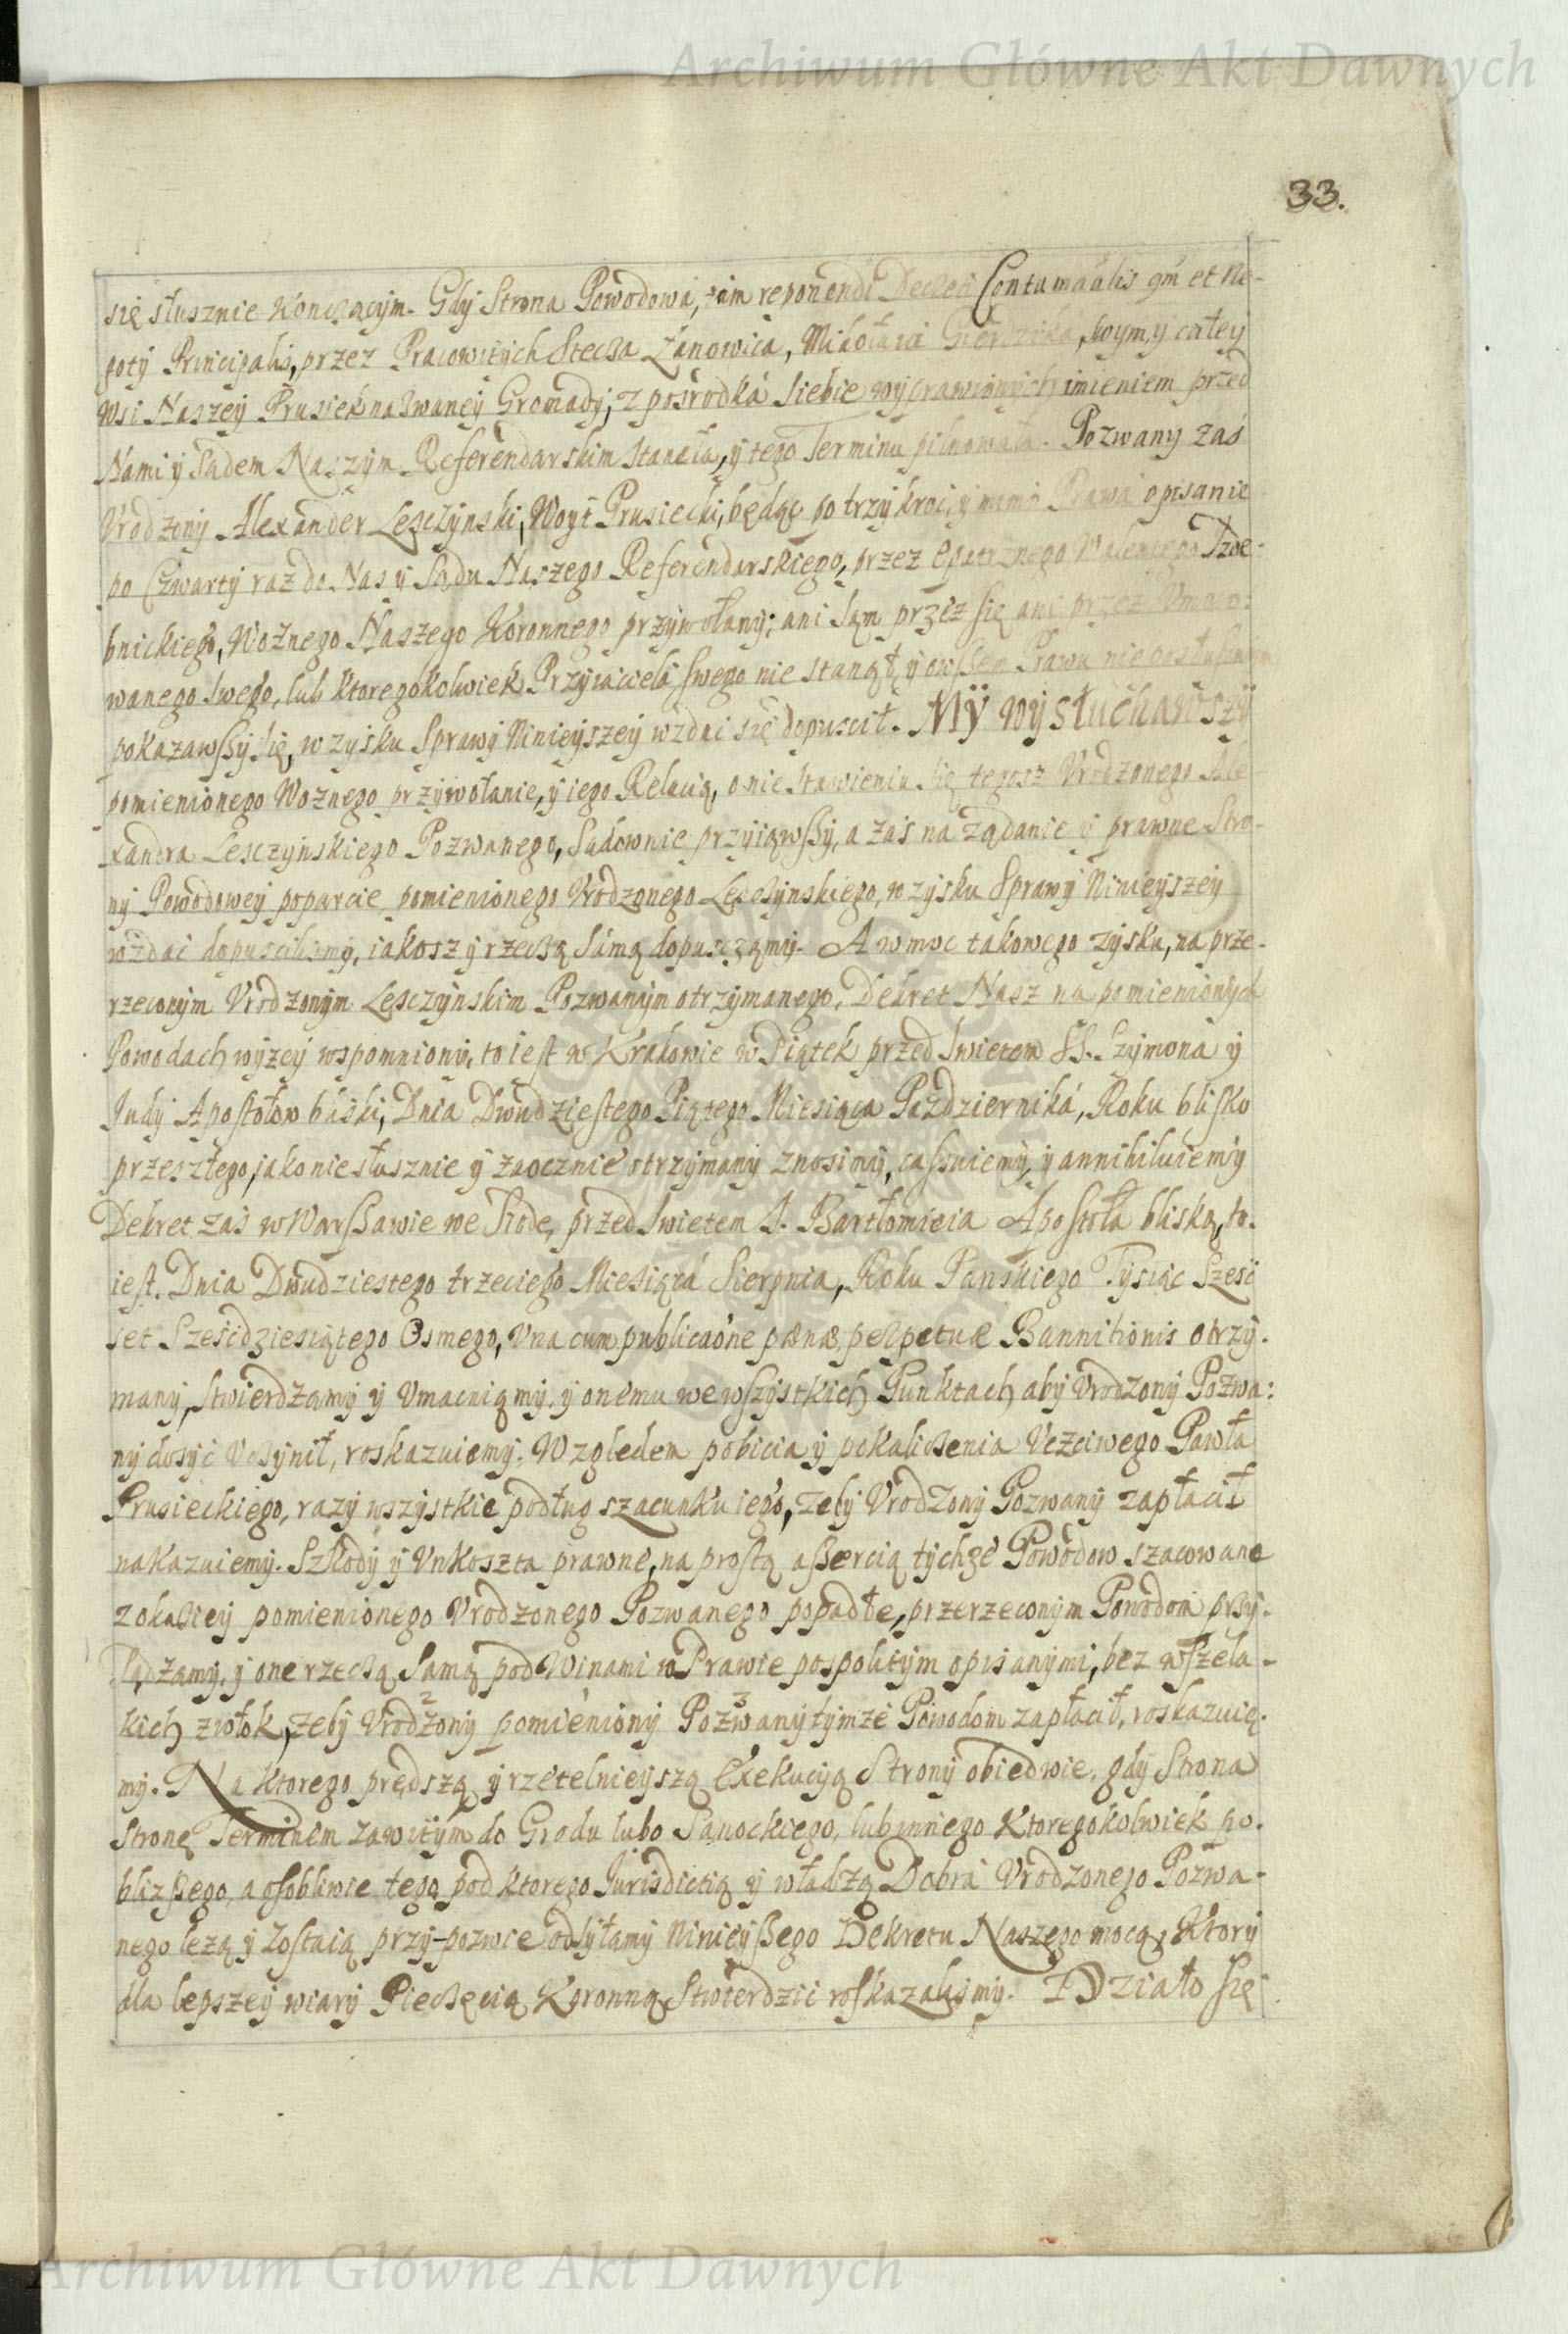 Archiwum Główne Akt Dawnych
33.
się słusznie konczącym. Gdy Strona Powodowa, tam reponendi Decreti Contumacialis qm et Ne-
goty Principalis, przez Pracowitych Steczа Zanowica, Mikołaia, swym y całey
Wsi Naszey Prusiek nazwaney Gromady, z posrodká siebie wyprawionych imieniem przed
Nami y Sądem Naszym Referendarskim stanęła, y tego Terminu pilnowała. Pozwany zaś
Vrodzony Alexander Lesczynski, Woyt Prusiecki, będąc po trzykroć, y mimo Prawa opisanie
po czwarty raz do Nas y Sądu Naszego Referendarskiego, przez Opatrznego Walentego Szde-
bnickiego, Woznego Naszego Koronnego przywołany; ani sąm przez się ani przez Vmoco-
wanego swego, lub ktoregokolwiek Przyiaciela swego nie stanął, y owszem Prawu nieposłusznym
pokazawszy się, w zysku Sprawy Ninieyszey wzdać się dopuscił. My wysłuchawszy
pomienionego Woznego przywołanie, y iego Relacią, o nie stawieniu się tegosz Vrodzonego Ale-
xandra Lesczynskiego Pozwanego, Sądownie przyiąwszy, a zaś na żądanie y prawne Stro-
ny Powodowey poparcie, pomienionego Vrodzonego Lesczynskiego, w zysku Sprawy Ninieyszey
wzdać dopuscilismy, iakosz y rzeczą sámą dopusczamy. A w moc takowego zysku, na prze-
rzeconym Vrodzonym Lesczynskim Pozwanym otrzymanego, Dekret Nasz na pomienionych
Powodach wyzey wspomniony, to iest w Krakowie w Piątek przed Swietem SS. Szymona y
Judy Apostołow bliski, Dnia Dwudziestego Piątego Miesiąca Pazdzierniká, Roku blisko
przeszłego, jako niesłusznie y zaocznie otrzymany znosimy, cassuiemy, y annihiluiemy
Dekret zaś w Warszawie we Srode, przed Swietem S. Bartłomieia Apostoła bliską, to-
iest. Dnia Dwudziestego trzeciego Miesiącá Sierpnia, Roku Panskiego Tysiąc Szesć
set Szesćdziesiątego Osmego, Vna cum publicaone pœnæ perpetuæ Bannitionis otrzy-
many, stwierdzamy y Vmacniąmy, y onemu we wszystkich Punktach aby Vrodzony Pozwa:
ny dosyć Vczynił, roskazuiemy. Względem pobicia y pokaliczenia Vczciwego Pawła
Prusieckiego, razy wszystkie podług szacunku iego, zeby Vrodzony Pozwany zapłacił
nakazuiemy. Szkody y Vnkoszta prawne, na prostą assercią tychze Powodow szacowane
z okaziey pomienionego Vrodzonego Pozwanego popadłe, przerzeconym Powodom przy-
sądzamy, y one rzeczą samą pod Winami w Prawie pospolitym opisanymi, bez wszela-
kich zwłok, zeby Vrodzony pomieniony Pozwany tymze Powodom zapłacił, roskazuię-
my. Na ktorego prędszą y rzetelnieyszą Exekucyą Strony obiedwie, gdy Strona
Stronę Terminem zawitym do Grodu lubo Sanockiego, lub innego ktoregokolwiek po-
blizszego, a osobliwie tego, pod ktorego Jurisdictią y władzą Dobra Vrodzonego Pozwa-
nego lezą y zostaią przy-pozwie odsyłamy Ninieyszego Dekretu Naszego mocą, Ktory
dla lepszey wiary Pieczęcią Koronną stwierdzić roskazalismy. Działo się
Archiwum Główne Akt Dawnych